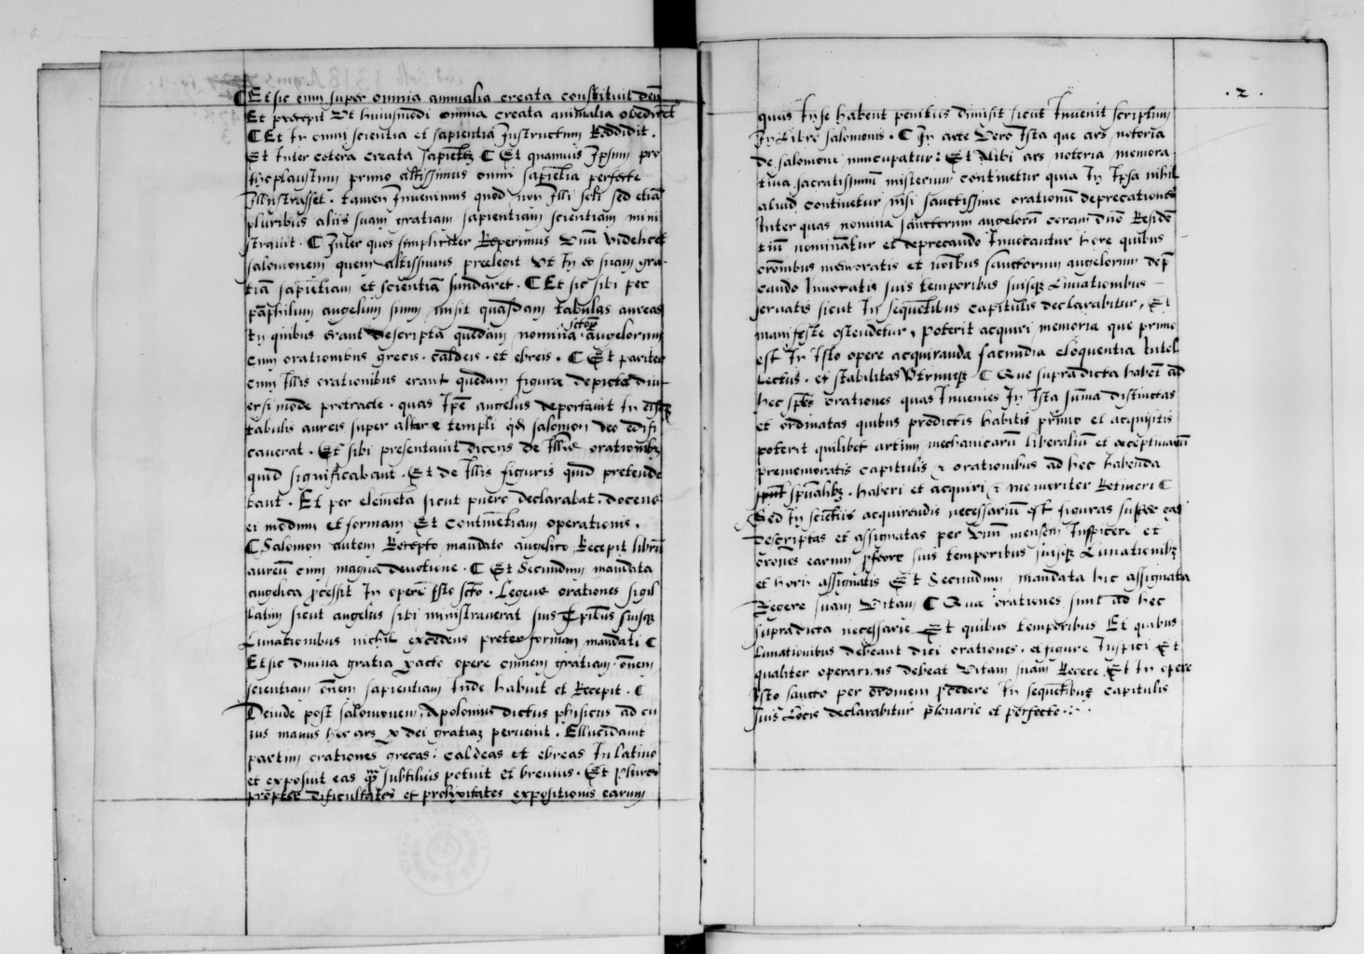 Et sic enim super omnia animalia creata constituit deus
Et precepit Ut huiusmodi omnia creata animalia obedirent
Et In omni scientia et sapientia Instructum Reddidit.
Et Inter cetera creata sapientem Et quamuis Ipsum pro
thoplaustum primo altissimus omni sapientia perfecte
Illustrasset. tamen Inuenimus quod non Illi soli sed etiam
pluribus aliis suam gratiam sapientiam scientiam mini
strauit. Inter quos simpliciter Reperimus Unum Videlicet
salomonem quem altissimus preelegit Ut In eo suam gra-
tiam sapientiam et scientiam fundaret. Et sic sibi per
pamphilium angelum suum misit quasdam tabulas aureas
In quibus erant descripta quedam nomina sctorum angelorum
cum orationibus grecis. caldeis. et ebreis. Et pariter
cum Illis orationibus erant quedam figura depicta diu-
ersi mode protracte. quas Ipse angelus deportauit In eisque
tabulis aureis super altare templi quod salomon deo edifi
cauerat. Et sibi presentauit dicens de Illis orationibus
quid significabant. Et de Illis figuris quid pretende
bant. Et per elementa sicut puero declarabat: docens
ei modum et formam Et continentiam operationis.
Salomon autem Recepto mandato angelico Recepit librum
aureum cum magna deuotione. Et Secundum mandata
angelica processit In opere Isto sancto. Legens orationes sigil
latim sicut angelus sibi ministrauerat suis temporibus suisque
Lunationibus nichil excedens preter formam mandati
Et sic diuina gratia peracto opere omnem gratiam. omnem
scientiam omnem sapientiam Inde habuit et Recepit.
Deinde post salomonem, Apolonius dictus phisicus ad eu
ius manus hec ars ex dei gratia peruenit. Ellucidauit
partim orationes grecas. caldeas et ebreas In latino
et exposuit eas quam subtilius potuit et breuius. Et plures
propter dificultates et prolixitates expositionis earum
.2.
quas In se habent penitus dimisit sicut Inuenit scriptum
In Libro salomonis. In arte Vero Ista que ars notoria
de salomoni nuncupatur: Et Alibi ars notoria memora
tiua. sacratissimum misterium continetur quia In Ipsa nihil
aliud continetur nisi sanctissime orationum deprecationes
Inter quas nomina sanctorum angelorum coram domino Residen
tium nominantur et deprecando Inuocantur hore quibus
omnibus memoratis et nominibus sanctorum angelorum depre
cando Inuocatis suis temporibus suisque Lunationibus
seruatis sicut In sequentibus capitulis declarabitur, Et
manifeste ostendetur, poterit acquiri memoria que primo
est In Isto opere acquiranda facundia eloquentia Intel
lectus. et stabilitas Utriusque Que supradicta habent ad
hec spetiales orationes quas Inuenies In Ista summa distinctas
et ordinatas quibus predictis habitis primo et acquisitis
poterit quilibet artium mechanicarum liberalium et exceptiuarum
prememoratis capitulis & orationibus ad hec habenda
sunt spiritualibus. haberi et acquiri & memoriter Retineri
Sed In scientiis acquirendis necessarium est figuras super eas
descriptas et assignatas per Unum mensem Inspicere et
orationes earum proferre suis temporibus suisque Lunationibus
et horis assignatis Et Secundum mandata hic assignata
Regere suam Vitam Qua orationes sunt ad hec
supradicta necessarie Et quibus temporibus Et quibus
Lunationibus debeant dici orationes. et figure Inspici Et
qualiter operarius debeat Vitam suam Regere Et In opere
Isto sancto per ordinem procedere In sequentibus capitulis
suis Locis declarabitur plenarie et perfecte.